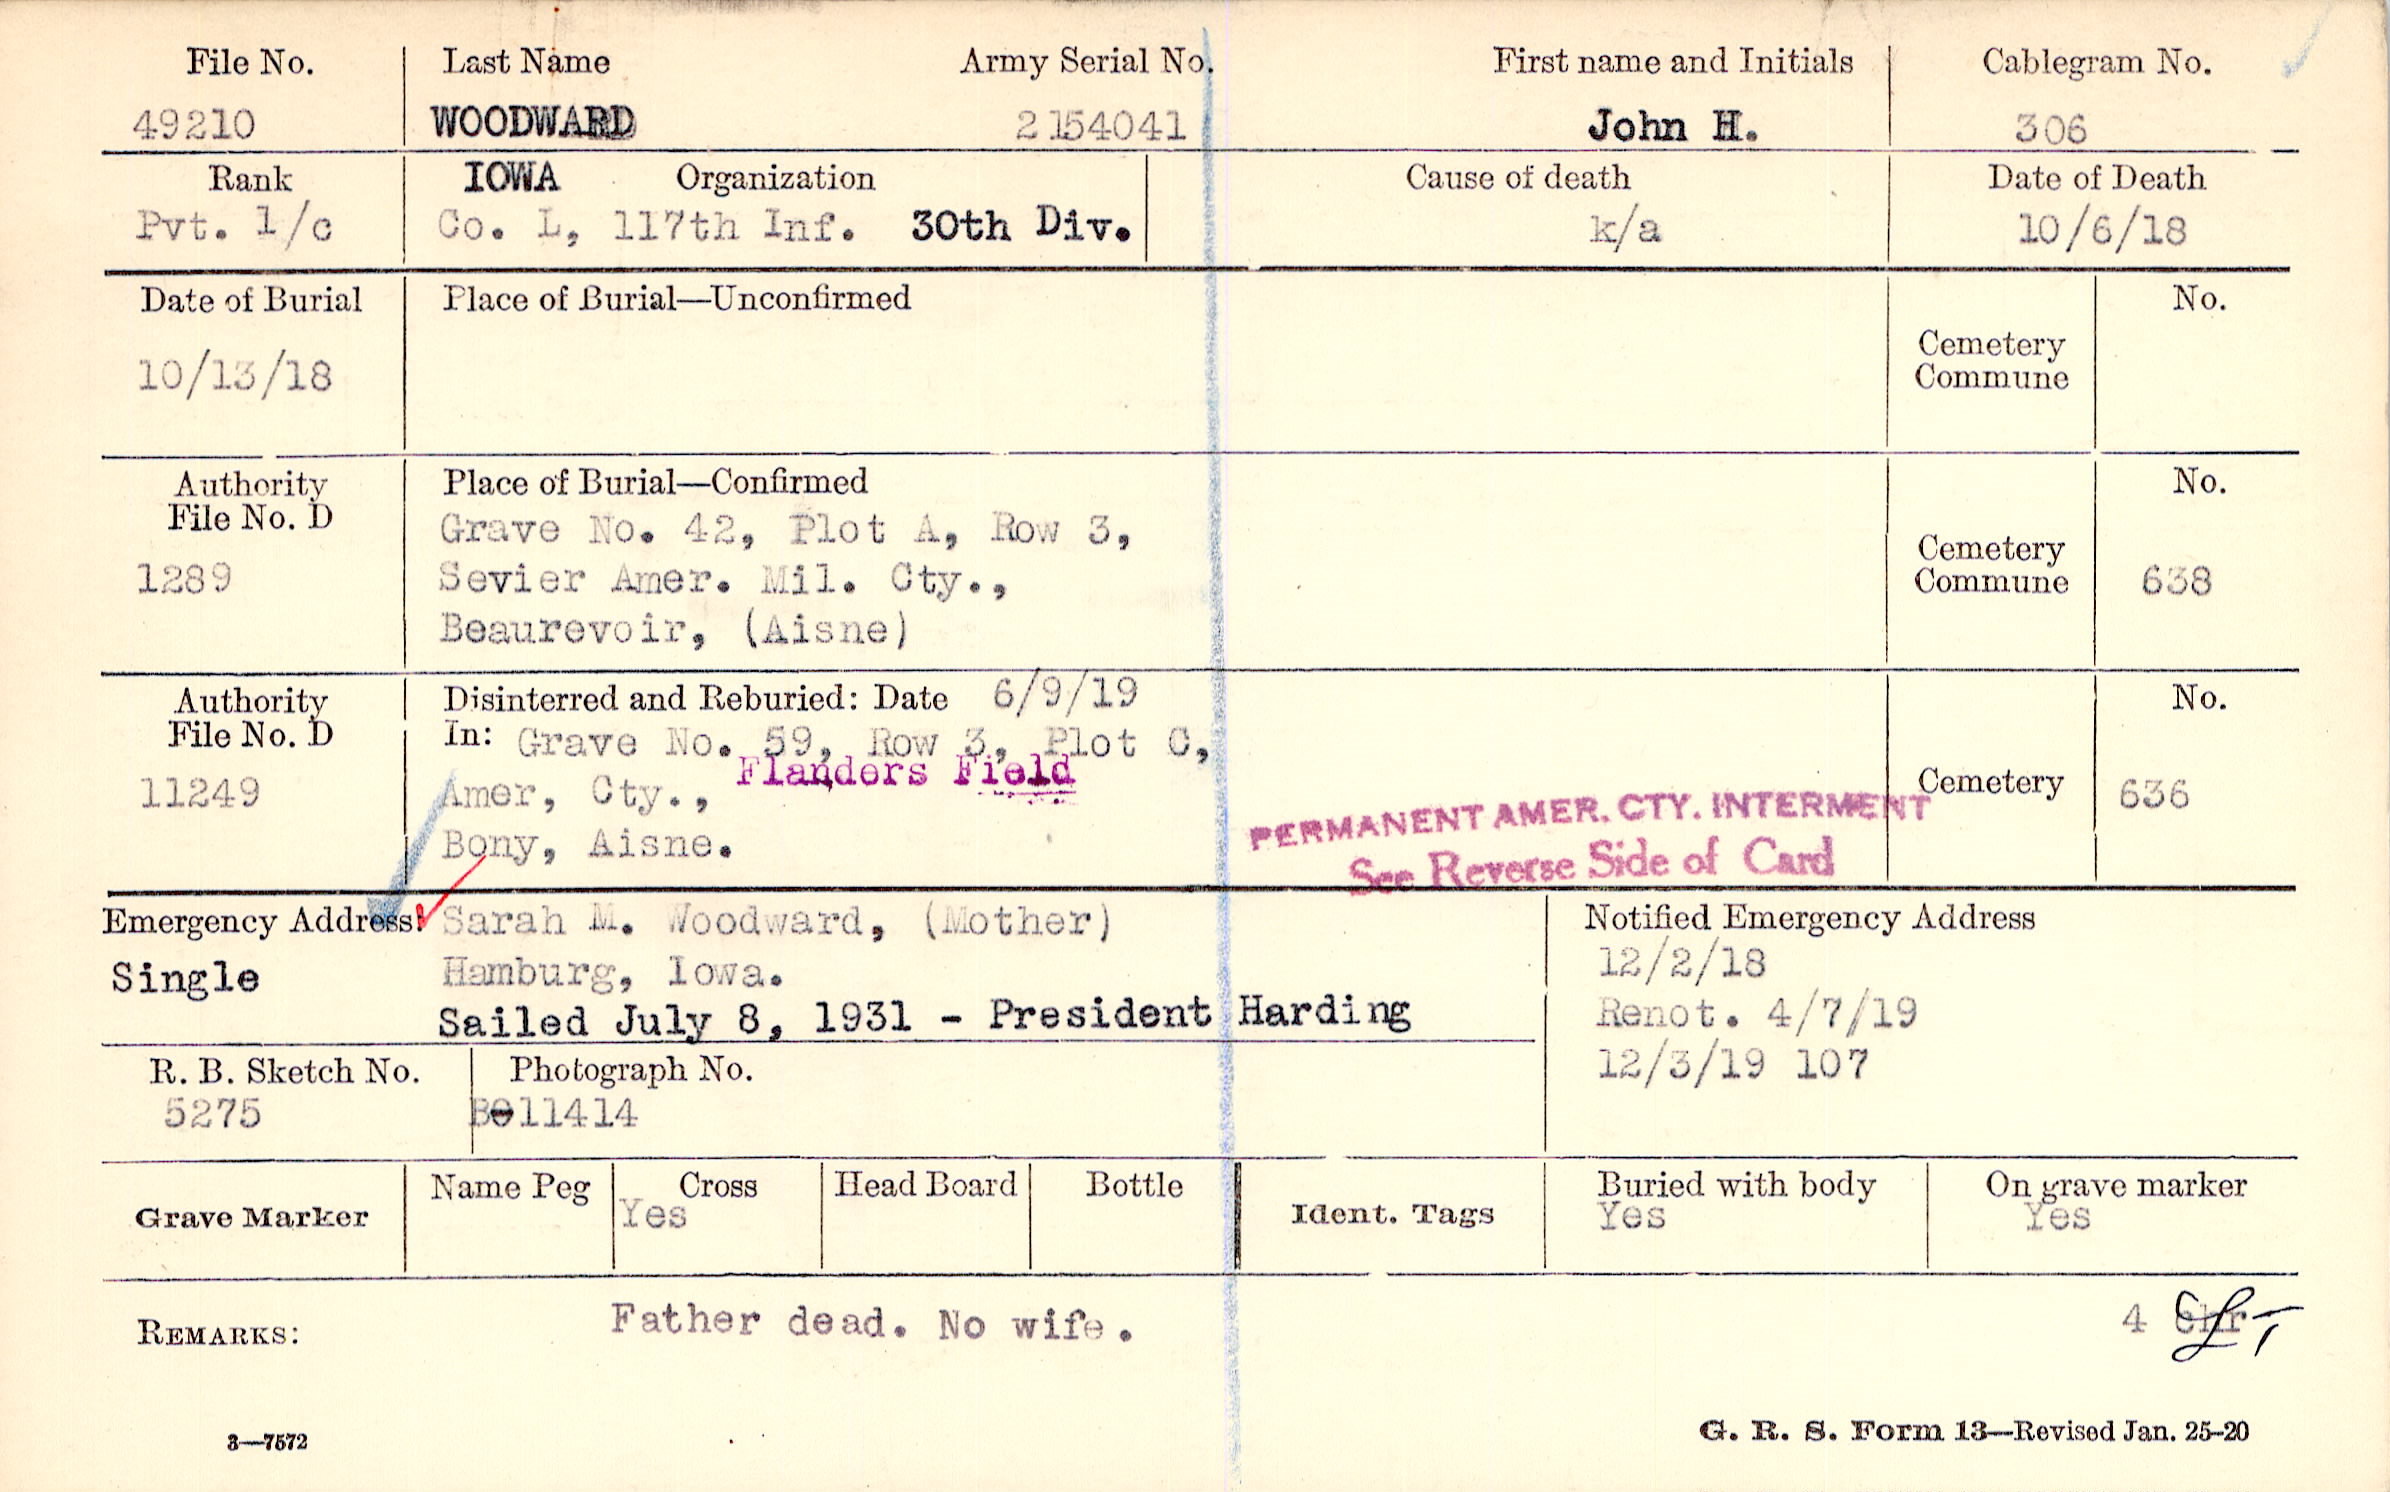 File No. Last Name Army Serial No. First name and Initials Cablegram No.
49210 WOODWARD 2154041 John H. 306
Rank IOWA Organization Cause of death Date of Death
Pvt. 1/c Co. L, 117th Inf. 30th Div. k/a 10/6/18
Date of Burial Place of Burial—Unconfirmed No.
10/13/18 Cemetery
Commune
Authority Place of Burial—Confirmed No.
File No. D Grave No. 42, Plot A, Row 3,
1289 Sevier Amer. Mil. Cty., Cemetery
Commune 638
Beaurevoir, (Aisne)
Authority Disinterred and Reburied: Date 6/9/19 No.
File No. D In: Grave No. 59, Row 3, Plot C,
Flanders Field
11249 Amer, Cty., Cemetery 636
PERMANENT AMER. CTY. INTERMENT
Bony, Aisne. See Reverse Side of Card
Emergency Address: Sarah M. Woodward, (Mother) Notified Emergency Address
Single Hamburg, Iowa. 12/2/18
Sailed July 8, 1931 - President Harding Renot. 4/7/19
R. B. Sketch No. Photograph No. 12/3/19 107
5275 Be11414
Grave Marker Name Peg Cross Head Board Bottle Ident. Tags Buried with body On grave marker
Yes Yes Yes
REMARKS: Father dead. No wife. 4
3—7572 G. R. S. Form 13—Revised Jan. 25-20